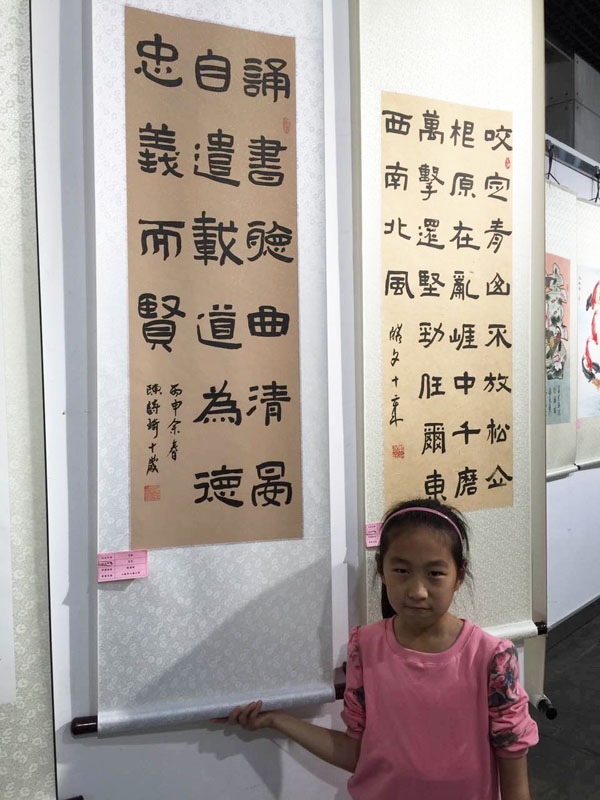 誦書聽曲清晏
自遣載道為德
忠義而賢
丙申余春
陳詩琦十歲
咬定青山不放松立
根原在亂崖中千磨
萬擊還堅勁任爾東
西南北風